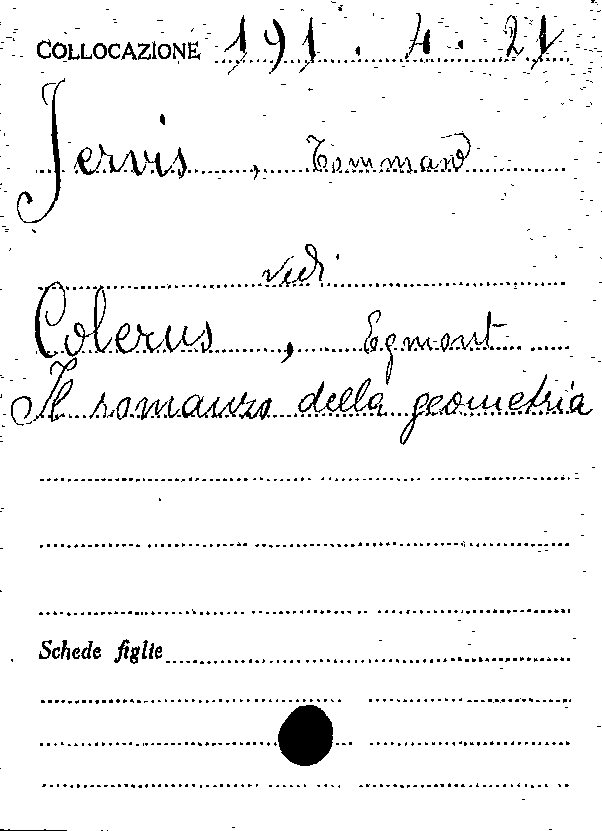 COLLOCAZIONE 191. 4. 21
Jervis, Tommaso
vedi
Colerus, Egmont
Il romanzo della geometria
Schede figlie